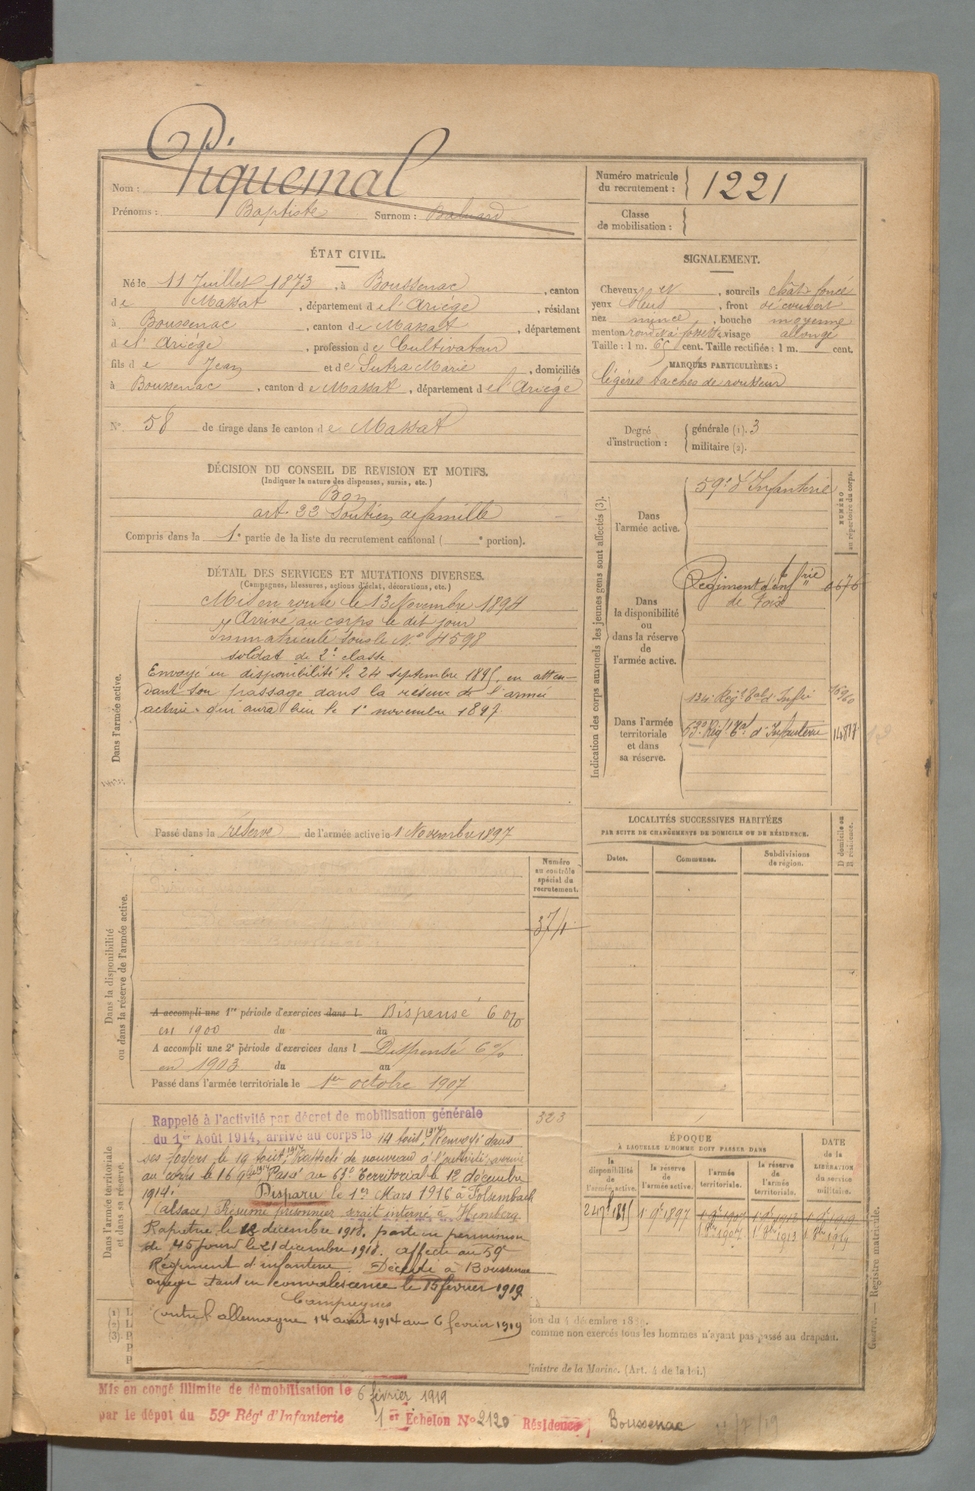 Nom : Piquemal
Prénoms : Baptiste Surnom :
Numéro matricule du recrutement : 1221
Classe de mobilisation :
ÉTAT CIVIL.
Né le 11 Juillet 1873, à Boussenac, canton
de Massat, département de l'Ariège, résidant
à Boussenac, canton de Massat, département
de l'Ariège, profession de Cultivateur
fils de Jean et de Sutra Marie, domiciliés
à Boussenac, canton de Massat, département de l'Ariège
N° 58 de tirage dans le canton de Massat
SIGNALEMENT.
Cheveux, sourcils chât. foncé
yeux bleus, front découvert
nez mince, bouche moyenne
menton rond à fossette visage allongé
Taille : 1 m. 65 cent. Taille rectifiée : 1 m. cent.
MARQUES PARTICULIÈRES :
légères taches de rousseur
Degré d'instruction : générale (1). 3
militaire (2).
DÉCISION DU CONSEIL DE REVISION ET MOTIFS.
(Indiquer la nature des dispenses, sursis, etc.)
Bon
art. 22 Soutien de famille
Compris dans la 1e partie de la liste du recrutement cantonal ( e portion).
DÉTAIL DES SERVICES ET MUTATIONS DIVERSES.
(Campagnes, blessures, actions d'éclat, décorations, etc.)
Dans l'armée active.
Mis en route le 13 Novembre 1894
y Arrivé au corps le dit jour
Immatriculé sous le N° 4598
soldat de 2e classe
Envoyé en disponibilité le 24 septembre 1895, en atten-
dant son passage dans la réserve de l'armée
active qui aura lieu le 1er novembre 1897
Passé dans la réserve de l'armée active le 1 Novembre 1897
Indication des corps auxquels les jeunes gens sont affectés (3).
NUMÉRO au répertoire du corps.
Dans l'armée active.
59e d'Infanterie
Dans la disponibilité ou dans la réserve de l'armée active.
Régiment d'Inf
de Foix
Dans l'armée territoriale et dans sa réserve.
134e Régt Tal d'Infrie
Régt Tal d'Infanterie
LOCALITÉS SUCCESSIVES HABITÉES
PAR SUITE DE CHANGEMENTS DE DOMICILE OU DE RÉSIDENCE.
D domicile ou R résidence.
Dates. Communes. Subdivisions de région.
Dans la disponibilité ou dans la réserve de l'armée active.
Numéro au contrôle spécial du recrutement.
A accompli une 1re période d'exercices dans l Dispensé 6 %
en 1900 du au
A accompli une 2e période d'exercices dans l Dispensé 6 %
en 1903 du au
Passé dans l'armée territoriale le 1er octobre 1907
323
Dans l'armée territoriale et dans sa réserve.
Rappelé à l'activité par décret de mobilisation générale
du 1er Août 1914, arrivé au corps le 14 août 1914. Renvoyé dans
ses foyers le 19 août 1914. Rappelé de nouveau à l'activité, arrivé
au corps le 16 9bre 1914. Passé au 63e Territorial le 12 décembre
1914. Disparu le 1er Mars 1916 à
(alsace) Présumé prisonnier serait interné à
Rapatrié le 18 décembre 1918, parti en permission
de 45 jours le 21 décembre 1918. affecté au 59e
Régiment d'infanterie. Décédé à Boussenac
étant en convalescence le 15 février 1919
Campagnes
contre l'allemagne 14 août 1914 au 6 février 1919
ÉPOQUE
À LAQUELLE L'HOMME DOIT PASSER DANS
la disponibilité de l'armée active. la réserve de l'armée active. l'armée territoriale. la réserve de l'armée territoriale.
DATE de la LIBÉRATION du service militaire.
24 7bre 1895 1 9bre 1897 1 9bre 1907
1 8bre 1907 1 8bre 1913 1 8bre 1919
comme non exercés tous les hommes n'ayant pas passé au drapeau.
Ministre de la Marine. (Art. 4 de la loi.)
Guerre. — Registre matricule.
Mis en congé illimité de démobilisation le 6 février 1919
par le dépôt du 59e Régt d'Infanterie 1er Echelon N° 2120 Résidence Boussenac